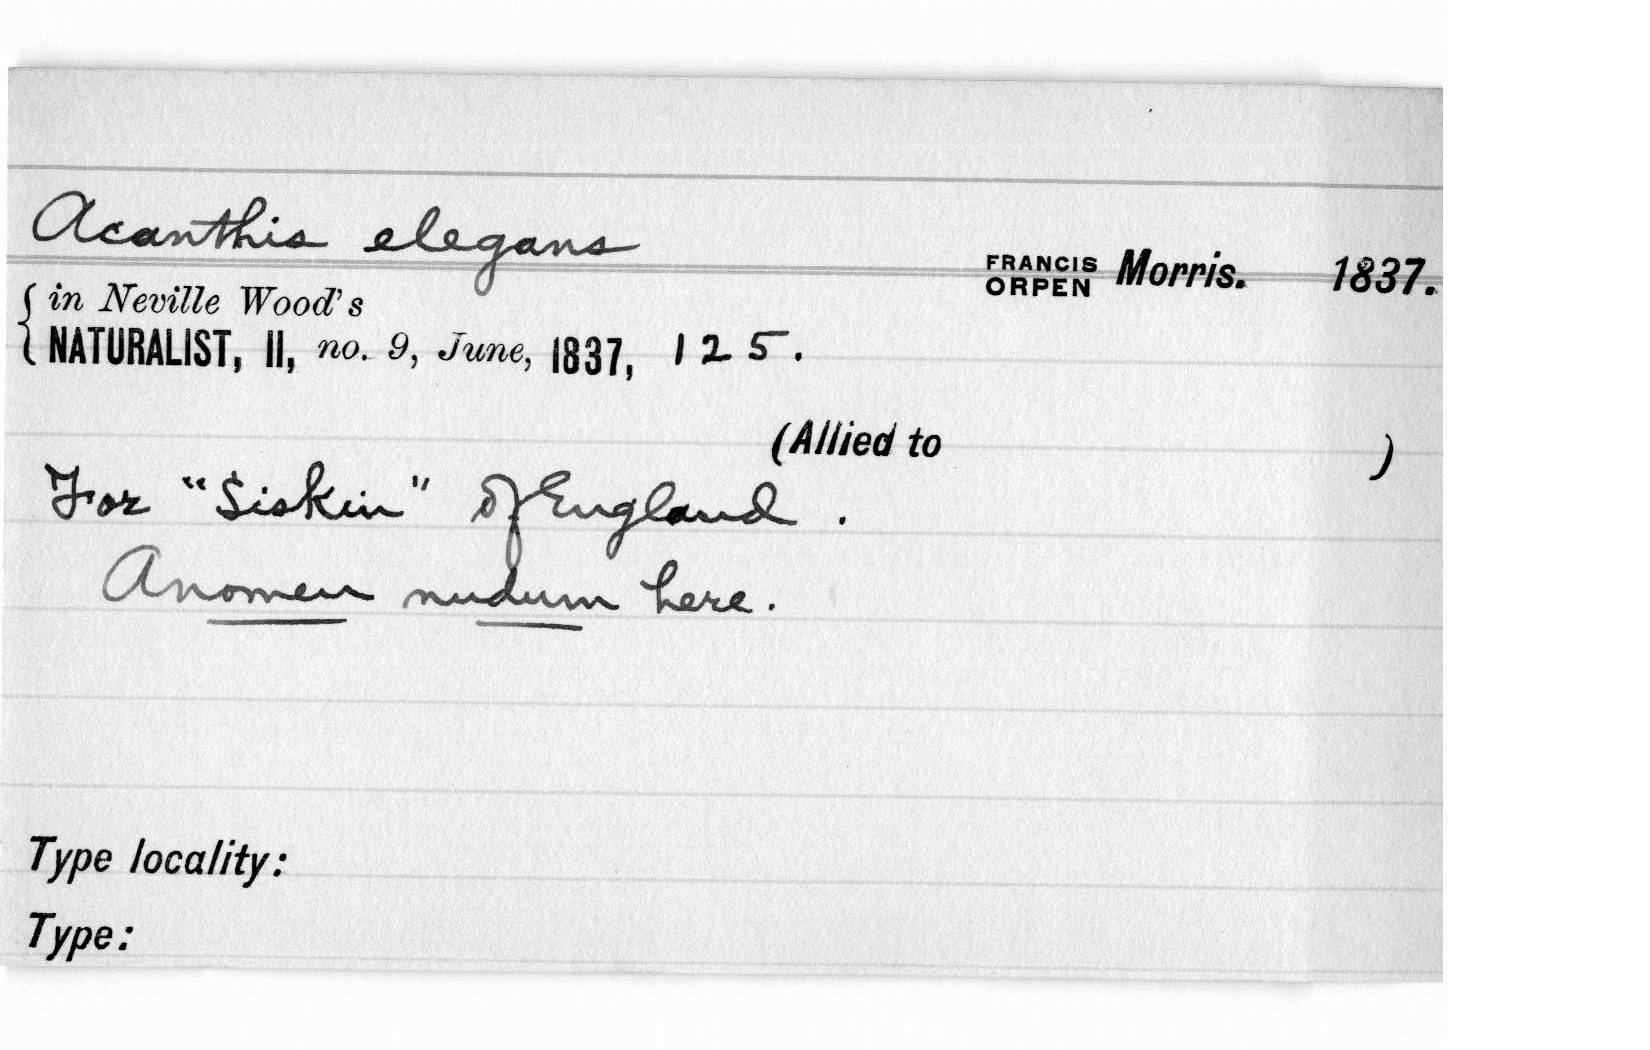 Acanthis elegans
FRANCIS ORPEN Morris. 1837.
{ in Neville Wood's
NATURALIST, II, no. 9, June, 1837, 125.
(Allied to )
For "Siskin" of England.
A nomen nudum here.
Type locality:
Type: